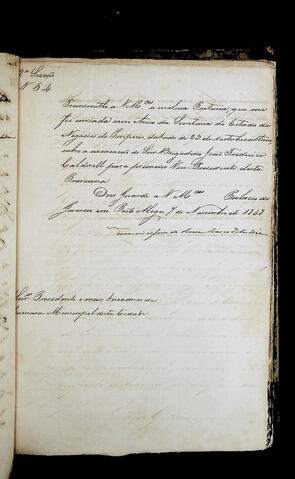 2ª Secção
N 54
Transmitto a V Mces a inclusa Portaria, que me
foi enviada com Aviso da Secretaria de Estado dos
Negocios do Imperio, datado de 23 de
sobre a nomeação do Snr Brigadeiro João Frederico
Caldwell para primeiro Vice Presidente desta
Provincia
Deos Guarde a V Mces Palacio do
Governo em Porto Alegre 7 de Novembro de 1843
Snr Presidente e mais Vereadores da
Camara Municipal desta Cidade